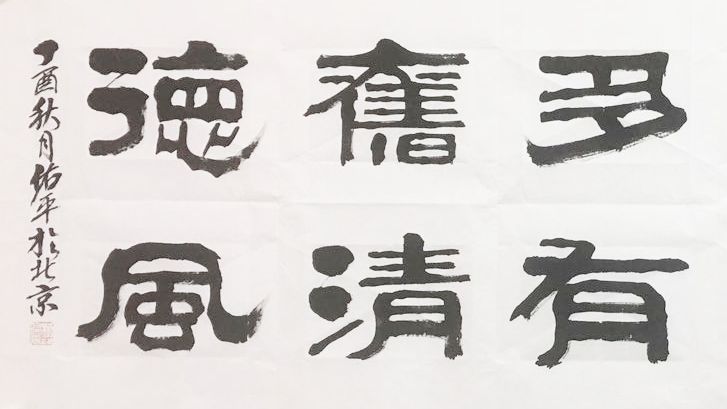 多舊德
有清風
丁酉秋月佑平於北京